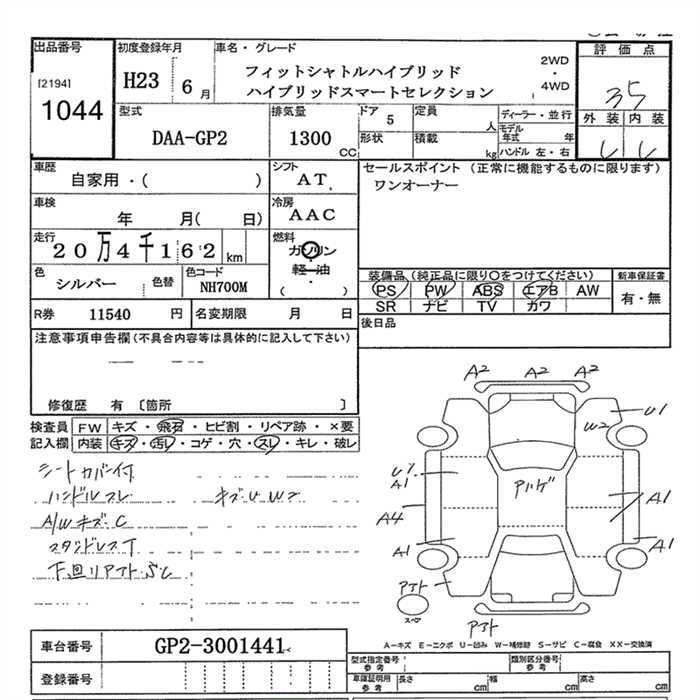 出品番号
[2194]
1044
初度登録年月
H23 6 月
車名・グレード
フィットシャトルハイブリッド
ハイブリッドスマートセレクション
2WD
・
4WD
評価点
35
外装 内装
型式
DAA-GP2
排気量
1300 CC
ドア 5
形状
定員 人
積載 kg
ディーラー・並行
モデル年式 年
ハンドル 左・右
車歴
自家用・( )
シフト
AT
セールスポイント (正常に機能するものに限ります)
ワンオーナー
車検
年 月( 日)
冷房
AAC
走行
20万4千162 km
燃料
ガソリン
・
軽油
( )
色
シルバー
色替
色コード
NH700M
装備品 (純正品に限り○をつけてください)
PS PW ABS エアB AW
SR ナビ TV カワ
新車保証書
有・無
R券 11540 円
名変期限 月 日
後日品
注意事項申告欄 (不具合内容等は具体的に記入して下さい)
修復歴 有 〔箇所 〕
検査員記入欄
FW キズ・飛石・ヒビ割・リペア跡・×要
内装 キズ・汚レ・コゲ・穴・スレ・キレ・破レ
シートカバー付
ハンドルスレ
キズU W2
A/Wキズ・C
スタッドレスT
下回リアフトSC
A2 A2 A2
U1
W2
A1
A4
A1
A1
A1
スペア
A-キズ E-エクボ U-凹み W-補修跡 S-サビ C-腐食 XX-交換済
車台番号
GP2-3001441
登録番号
型式指定番号
参考
類別区分番号
参考
車庫証明用
参考
長さ cm
幅 cm
高さ cm